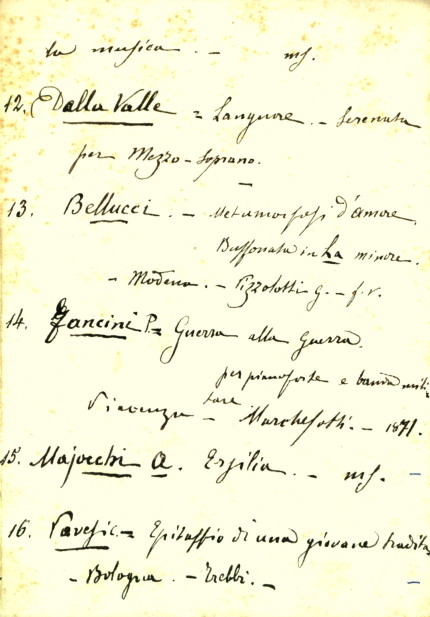 la musica. - ms.
12. Dalla Valle = Languore. - Serenata
per Mezzo-Soprano.
13. Bellucci. - Metamorfosi d'amore.
Buffonata in La minore.
- Modena. - Pizzolotti G. - f. v.
14. Zancini P. = Guerra alla Guerra.
per pianoforte e banda mili=
tare
Piacenza - Marchesotti. - 1871.
15. Majocchi A. Ersilia. - ms. -
16. Pavesi c. = Epitaffio di una giovane tradita
- Bologna. - Trebbi. -